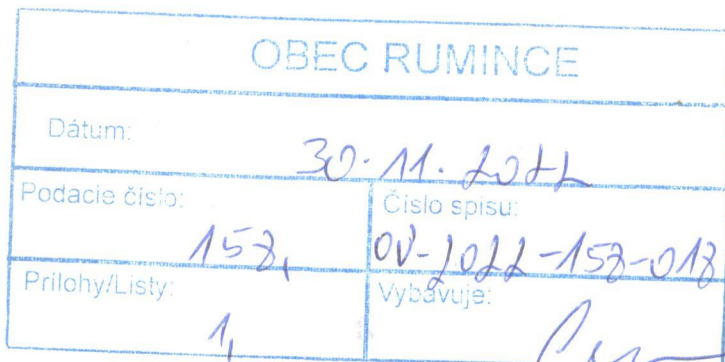 OBEC RUMINCE
Dátum: 30.11.2022
Podacie číslo: 158,
Číslo spisu: OV-2022-158-018
Prílohy/Listy: 1,
Vybavuje: